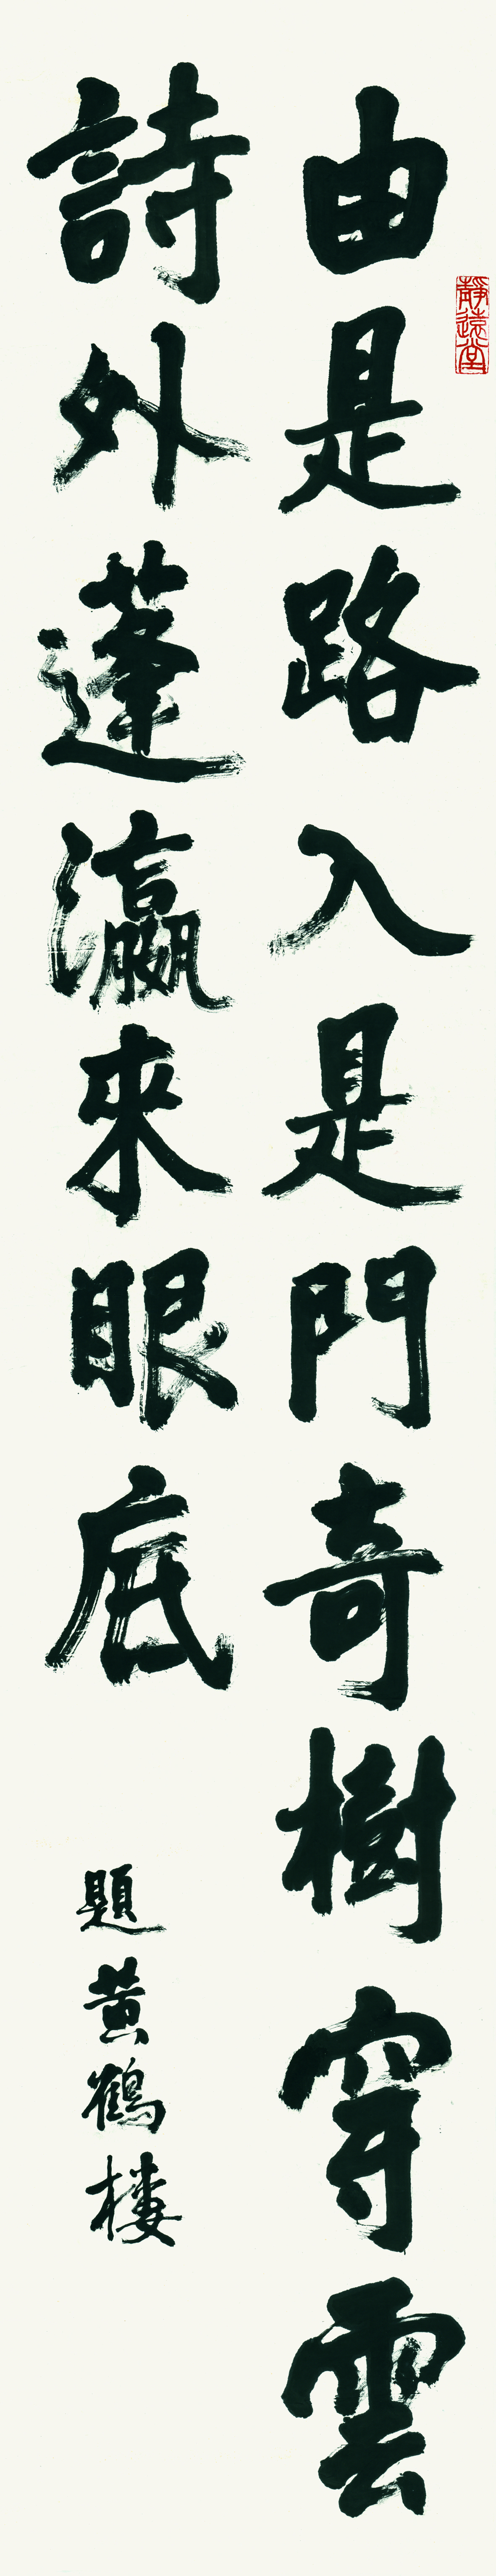 由是路入是門奇樹穿雲
詩外蓬瀛來眼底
題黃鶴樓
靜遠堂